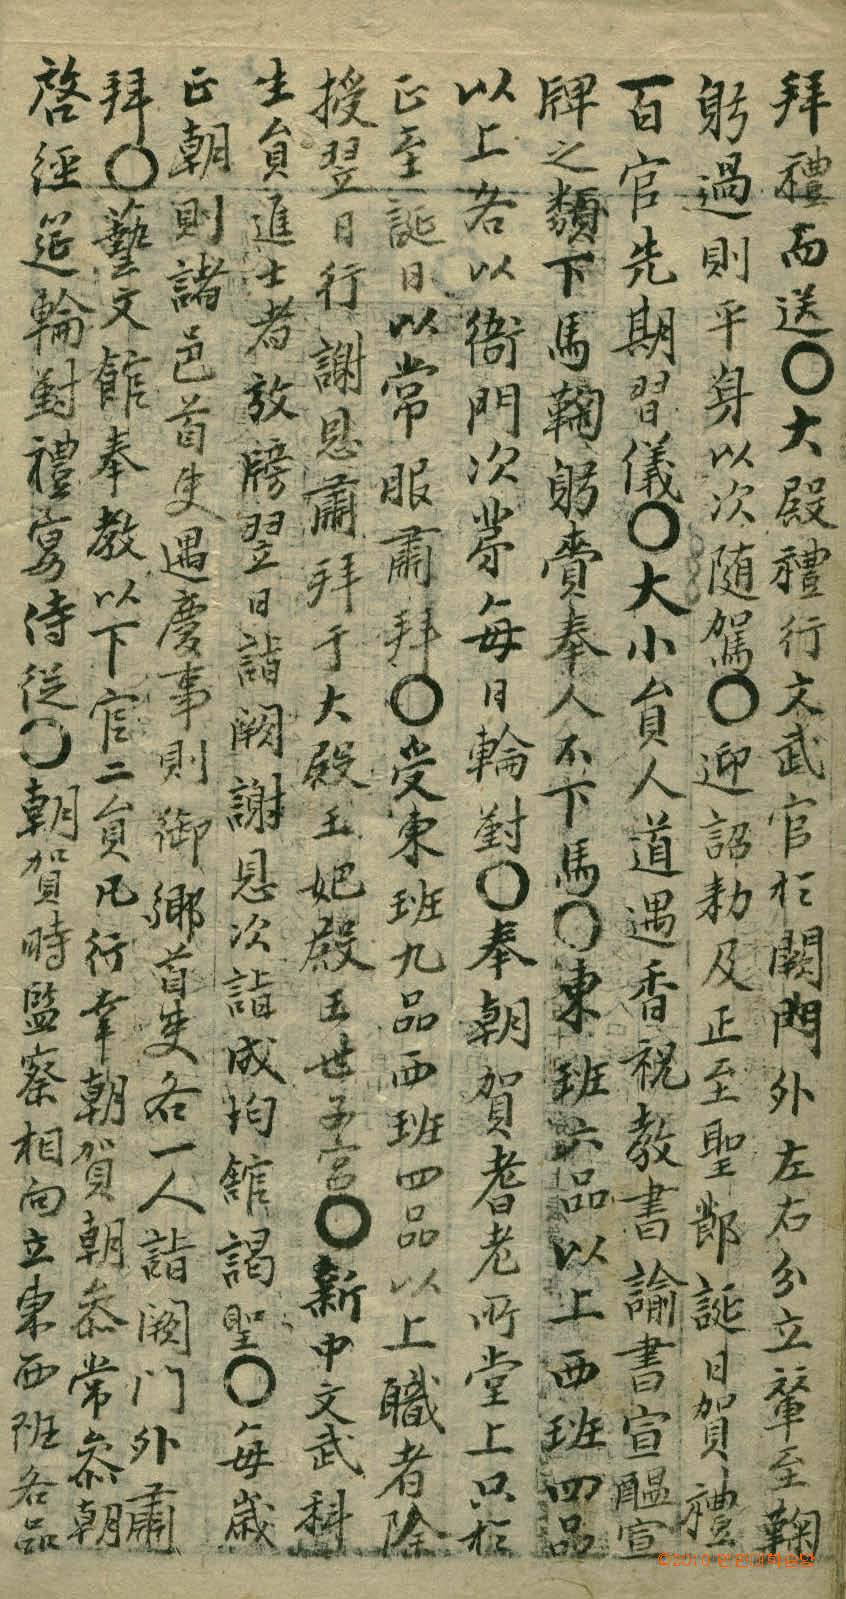 拜禮而送○大殿禮行文武官於闕門外左右分立輦至鞠
躬過則平身以次随駕○迎詔勅及正至聖節誕日賀禮
百官先期習儀○大小員人道遇香祝教書諭書宣醞宣
牌之類下馬鞠躬賫奉人不下馬○東班六品以上西班四品
以上各以衙門次第每日輪對○奉朝賀耆老所堂上只於
正至誕日以常服肅拜○受東班九品西班四品以上職者除
授翌日行謝恩肅拜于大殿王妃殿王世子宮○新中文武科
生員進士者放牓翌日詣闕謝恩次詣成均館謁聖○每歲
正朝則諸邑首吏遇慶事則御鄉首吏各一人詣闕門外肅
拜○藝文館奉教以下官二員凡行幸朝賀朝叅常叅朝
啓經筵輪對禮宴侍從○朝賀時監察相向立東西班各品